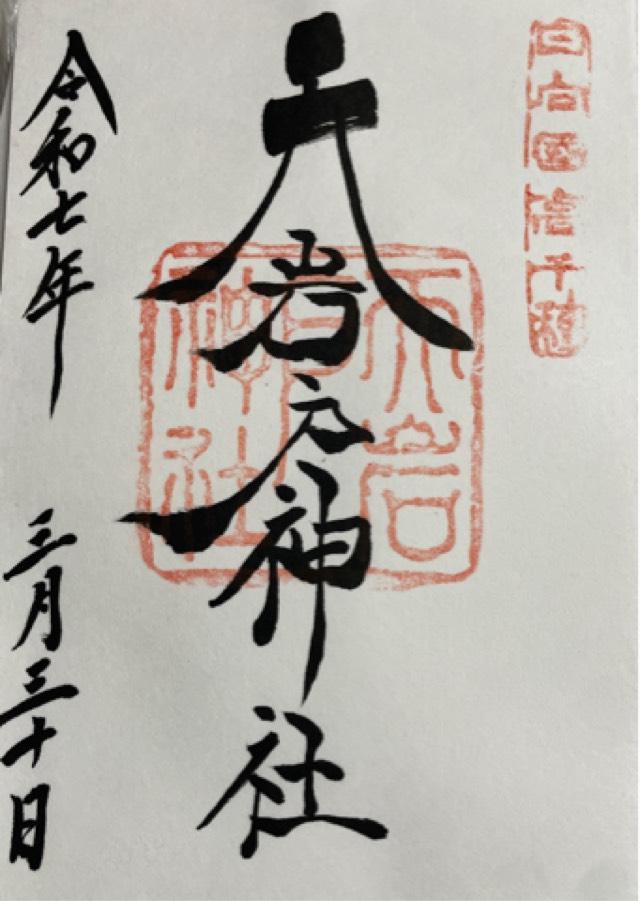 日向國高千穂
天岩戸神社
天岩
戸
神社
令和七年 三月三十日